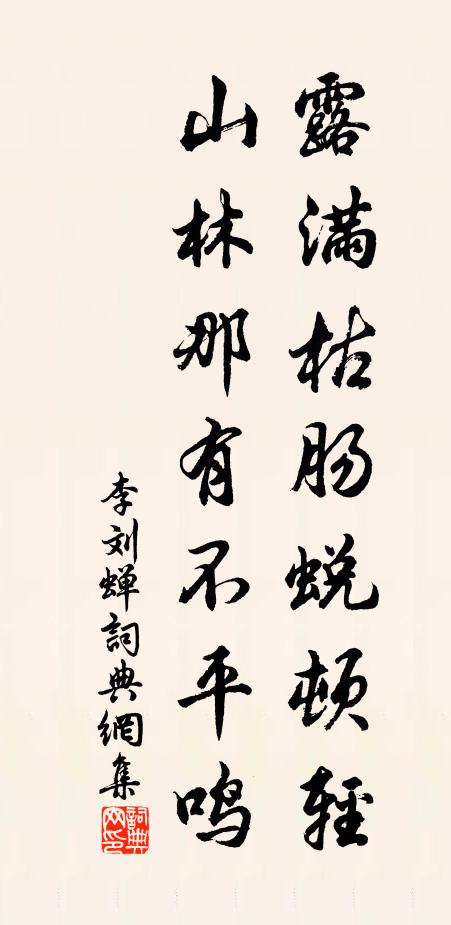 露满枯肠蜕顿轻
山林那有不平鸣
李刘蝉詞典網集
詞典网印